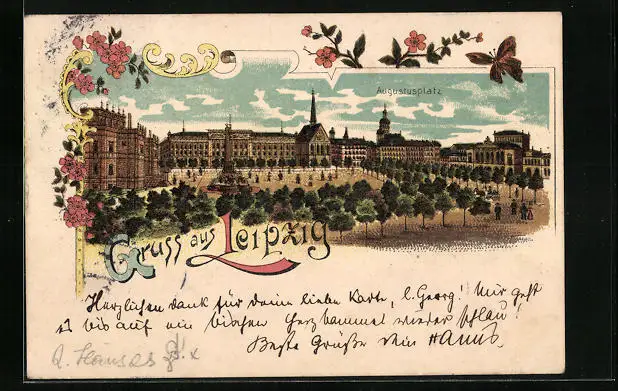 Augustusplatz
Gruss aus Leipzig
Herzlichen Dank für Deine lieben Karte, l. Georg! Mir geht
es bis auf ein bischen Herzbammel wieder schlau!
Beste Grüße Dein Hanns.